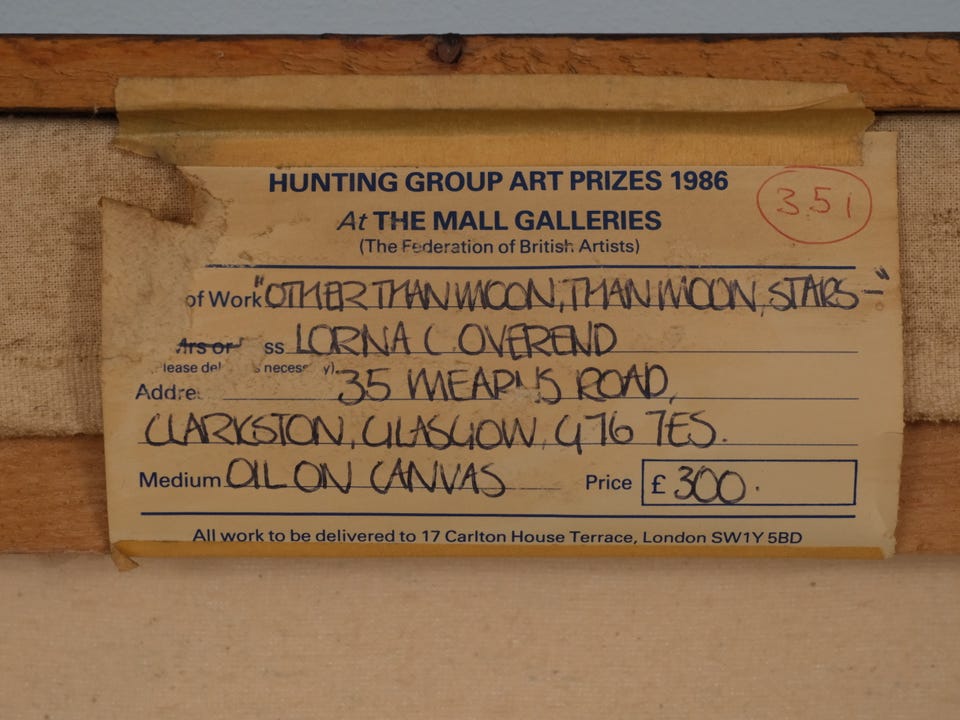 HUNTING GROUP ART PRIZES 1986
351
At THE MALL GALLERIES
(The Federation of British Artists)
of Work "OTHER THAN MOON, THAN MOON, STARS–"
Mrs or ss LORNA C OVEREND
lease del s necess y).
Addre 35 MEARNS ROAD,
CLARKSTON, GLASGOW, G76 7ES.
Medium OIL ON CANVAS Price £300.
All work to be delivered to 17 Carlton House Terrace, London SW1Y 5BD